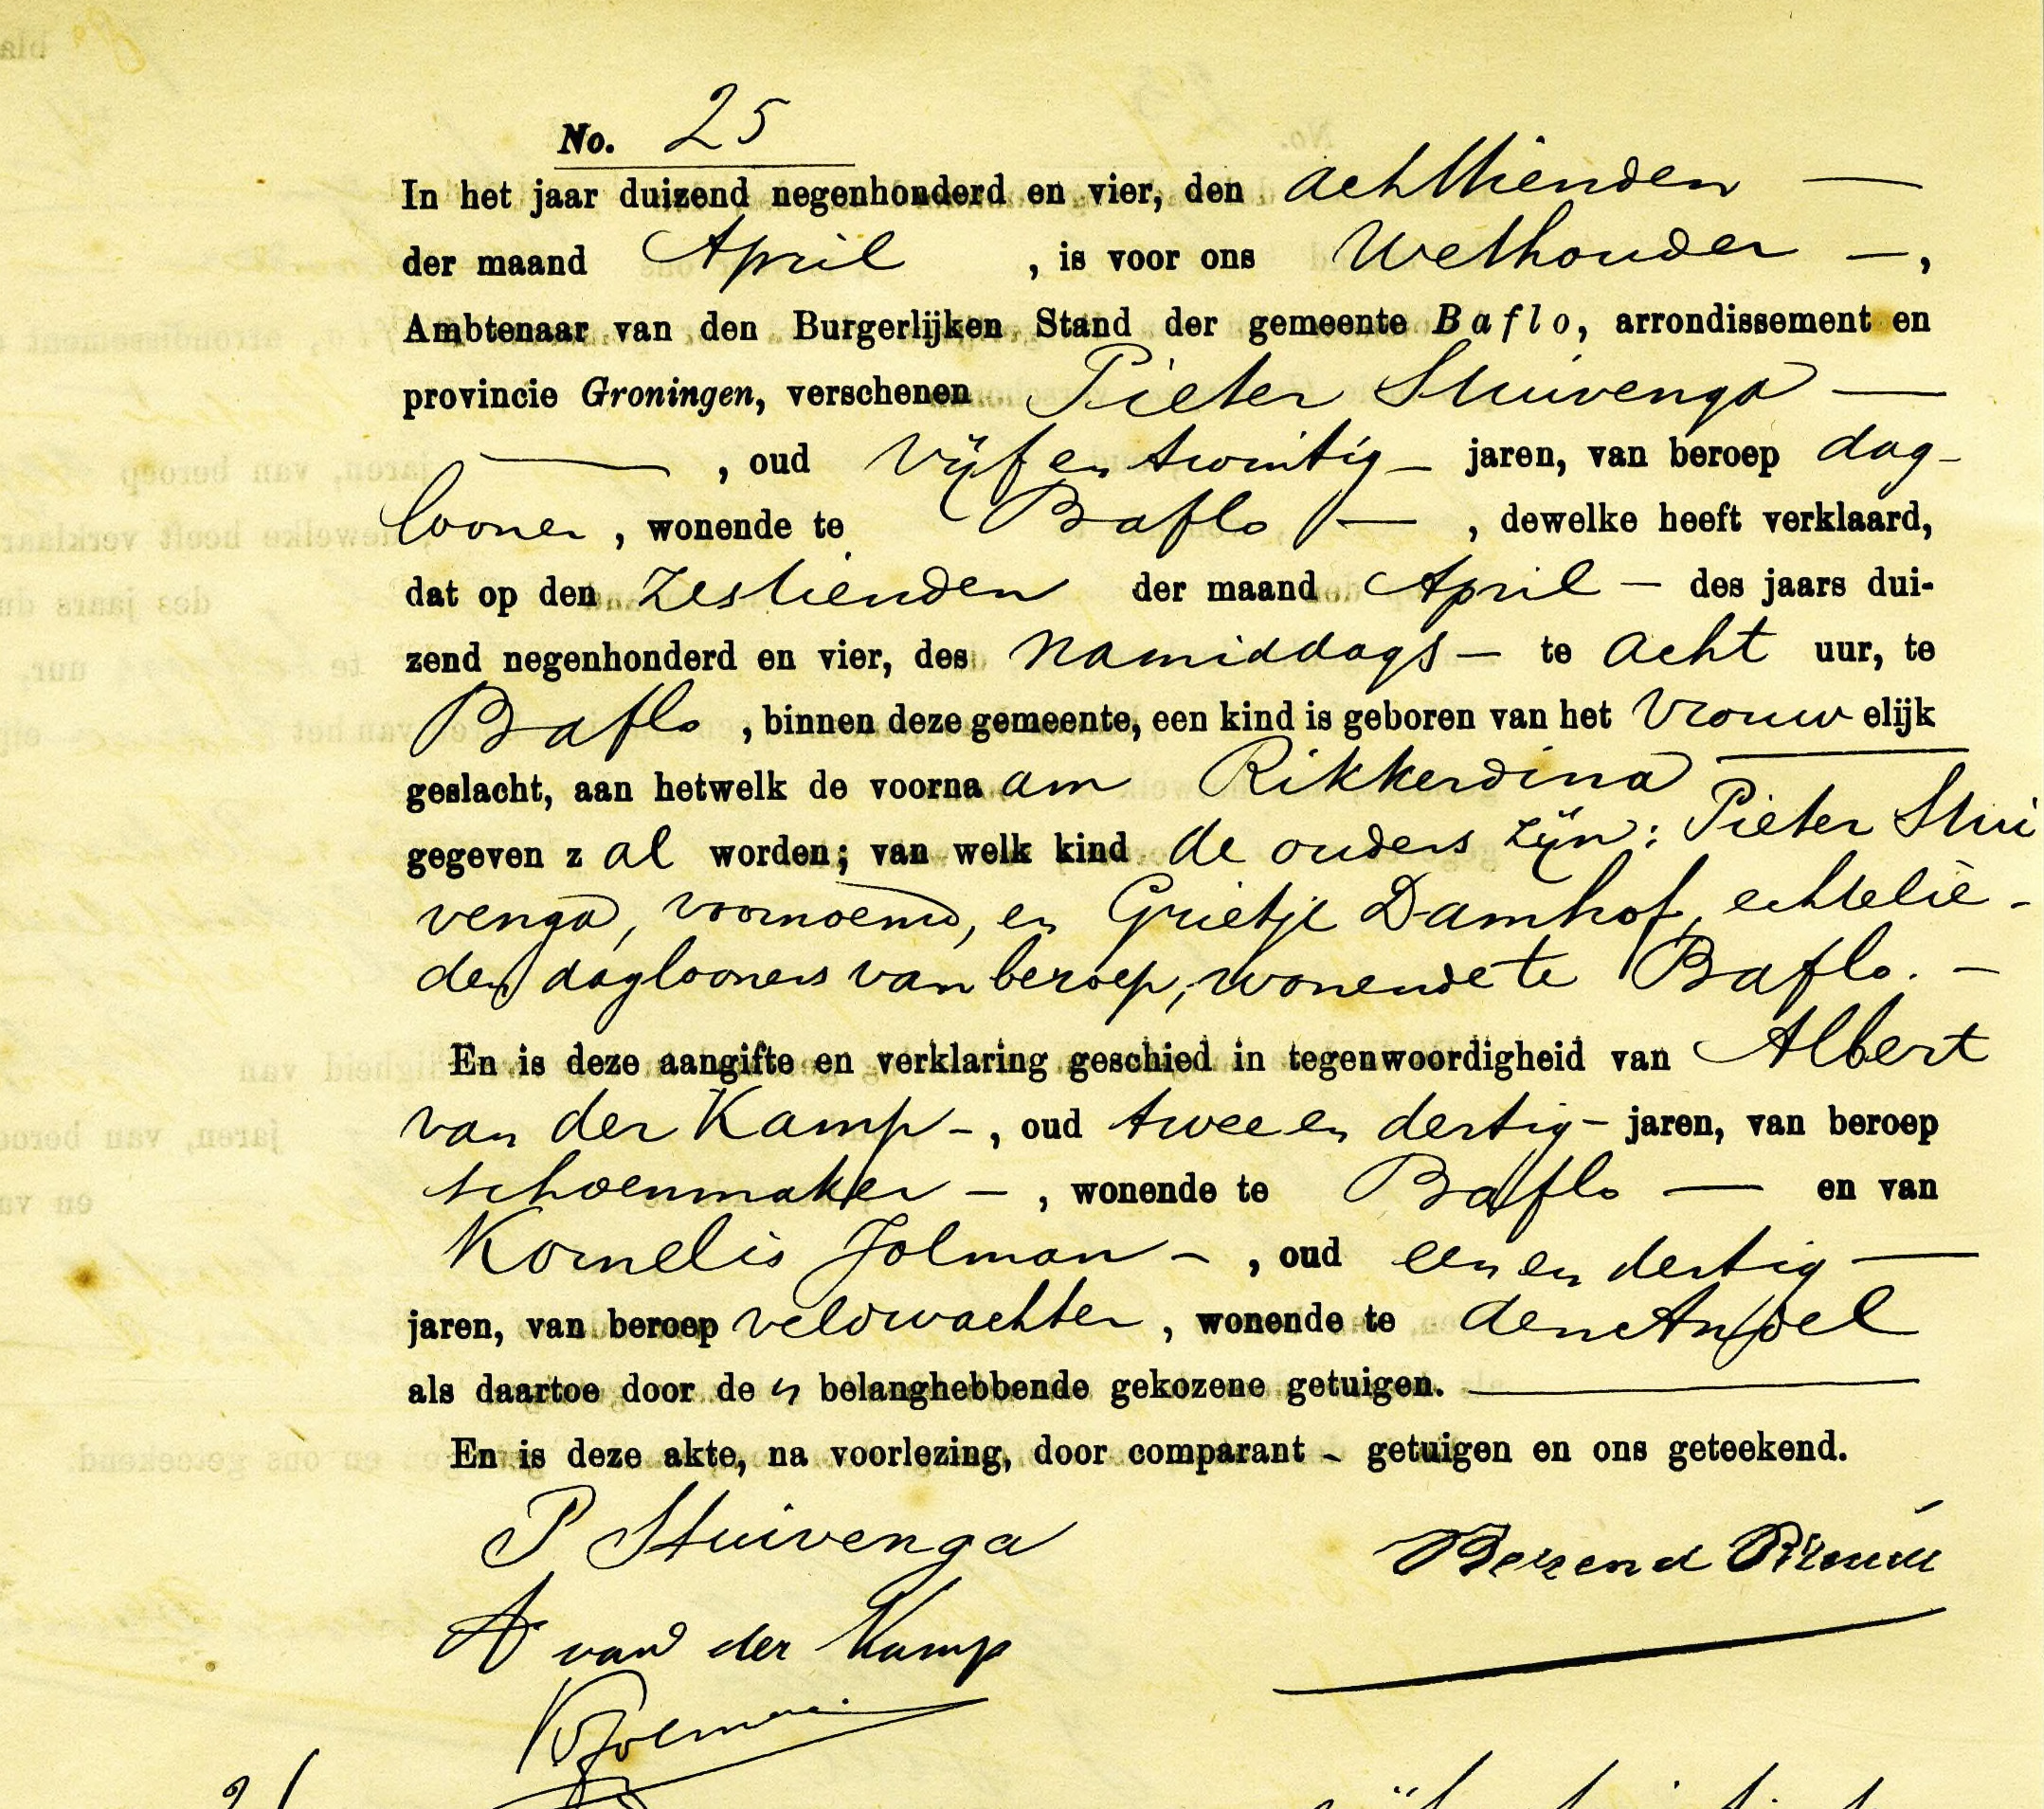 No. 25
In het jaar duizend negenhonderd en vier, den achttienden —
der maand April , is voor ons Wethouder —,
Ambtenaar van den Burgerlijken Stand der gemeente Baflo, arrondissement en
provincie Groningen, verschenen Pieter Stuivenga —
— , oud vijf en twintig — jaren, van beroep dag-
looner , wonende te Baflo — , dewelke heeft verklaard,
dat op den zestienden der maand April — des jaars dui-
zend negenhonderd en vier, des namiddags — te acht uur, te
Baflo , binnen deze gemeente, een kind is geboren van het vrouwelijk
geslacht, aan hetwelk de voornaam Rikkerdina —
gegeven zal worden; van welk kind de ouders zijn: Pieter Stui
venga, voornoemd, en Grietje Damhof, echtelie-
den, daglooners van beroep, wonende te Baflo. —
En is deze aangifte en verklaring geschied in tegenwoordigheid van Albert
van der Kamp —, oud twee en dertig — jaren, van beroep
schoenmaker — , wonende te Baflo — en van
Kornelis Jolman — , oud een en dertig —
jaren, van beroep veldwachter , wonende te den Andel
als daartoe door den belanghebbende gekozene getuigen. —
En is deze akte, na voorlezing, door comparant - getuigen en ons geteekend.
P Stuivenga
Berend
A van der Kamp
K Jolman